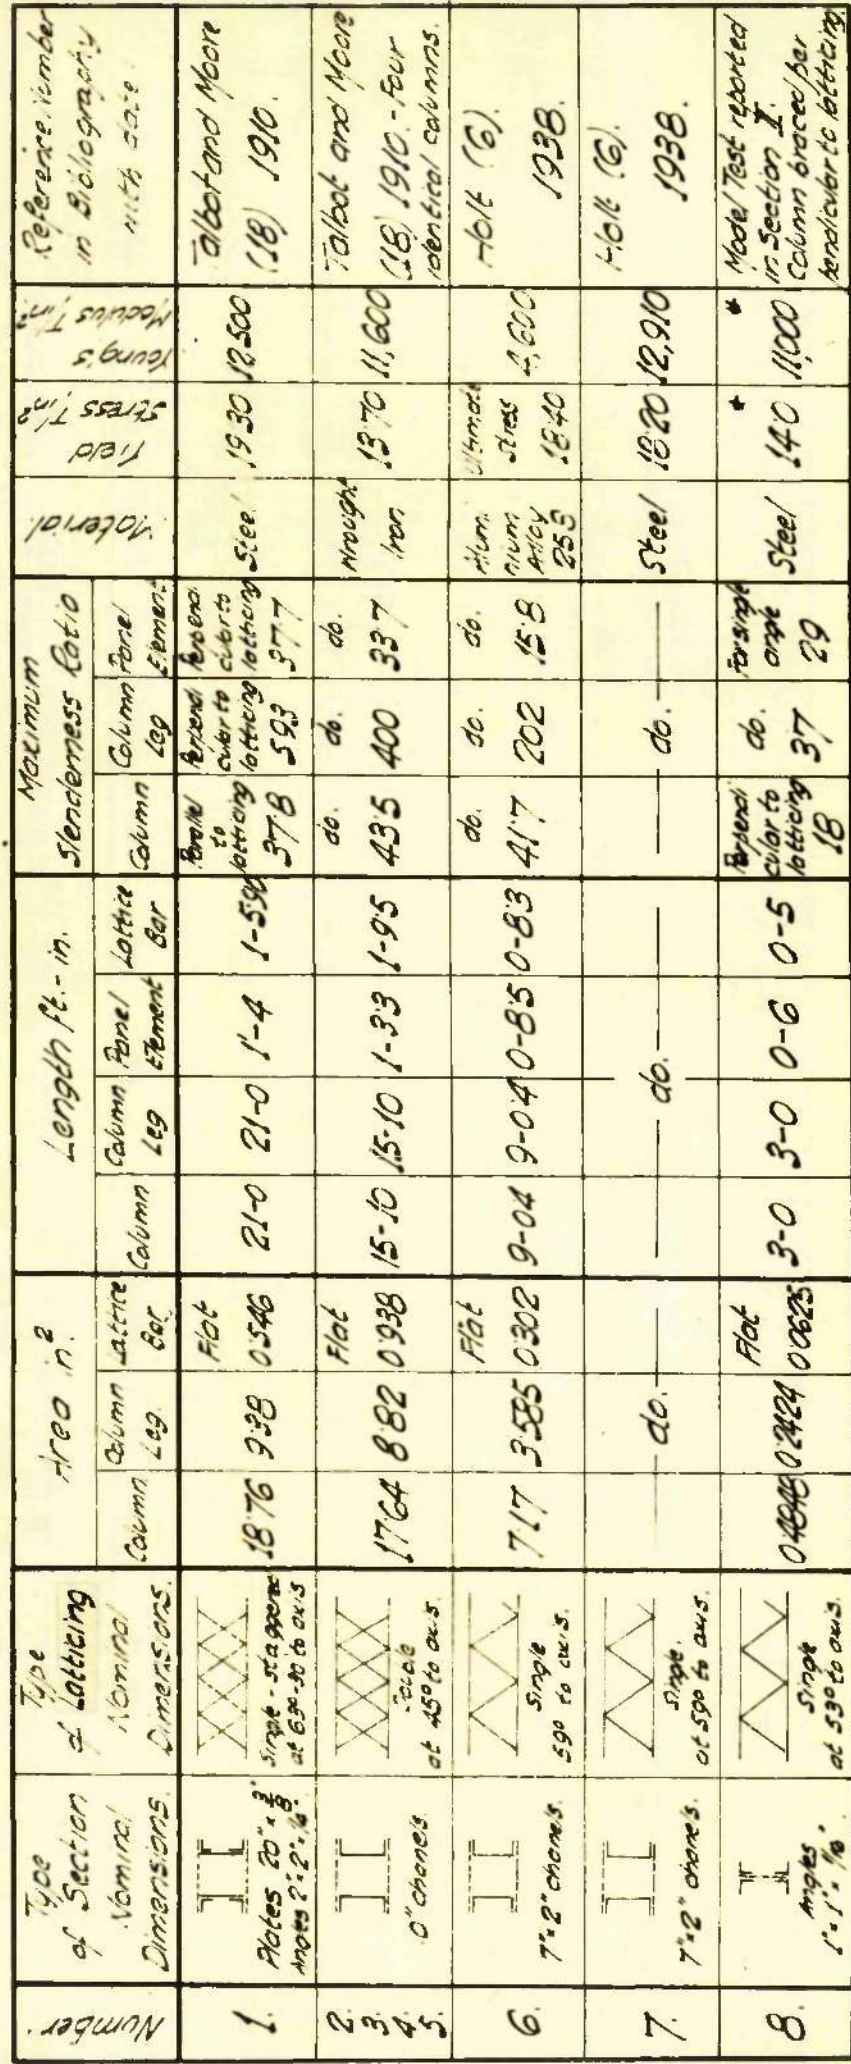 Number.
Type of Section Nominal Dimensions.
Type of Latticing Nominal Dimensions.
Area in.²
Column
Column Leg.
Lattice Bar
Length ft.-in.
Column
Column Leg
Panel Element
Lattice Bar
Maximum Slenderness Ratio
Column
Column Leg
Panel Element
Material
Yield Stress T/in²
Young's Modulus T/in²
Reference Number in Bibliography with date
1.
Plates 20" × 3/8"
Angles 2" × 2"
Single - staggered
at 63°-30 to axis
18·76
9·38
Flat
0·546
21-0
21-0
1'-4
Parallel to latticing
37·8
Perpendicular to latticing
59·3
Perpendicular to latticing
37·7
Steel
19·30
12,500
Talbot and Moore
(18) 1910.
2.
3.
4.
5.
0" chanels.
at 45° to axis.
17·64
8·82
Flat
0·938
15-10
15-10
1-3·3
1-9·5
do.
43·5
do.
400
do.
33·7
Wrought Iron
13·70
11,600
Talbot and Moore
(18) 1910. - Four
identical columns.
6.
7" × 2" chanels.
Single
59° to axis.
7·17
3·585
Flat
0·302
9-0·4
9-0·4
0-8·5
0-8·3
do.
41·7
do.
202
do.
15·8
Aluminium Alloy
Ultimate Stress
18·40
4,600
Holt (6).
1938.
7.
7" × 2" chanels.
Single.
at 59° to axis.
do.
do.
do.
Steel
18·20
12,910
Holt (6).
1938.
8.
Angles
1" × 1" × 1/16".
Single
at 53° to axis.
0·4848
0·2424
Flat
0·0625
3-0
3-0
0-6
0-5
Perpendicular to latticing
18
do.
37
For single angle
29
Steel
*
14·0
*
11,000
Model Test reported
in Section V.
Column braced per
pendicular to latticing.